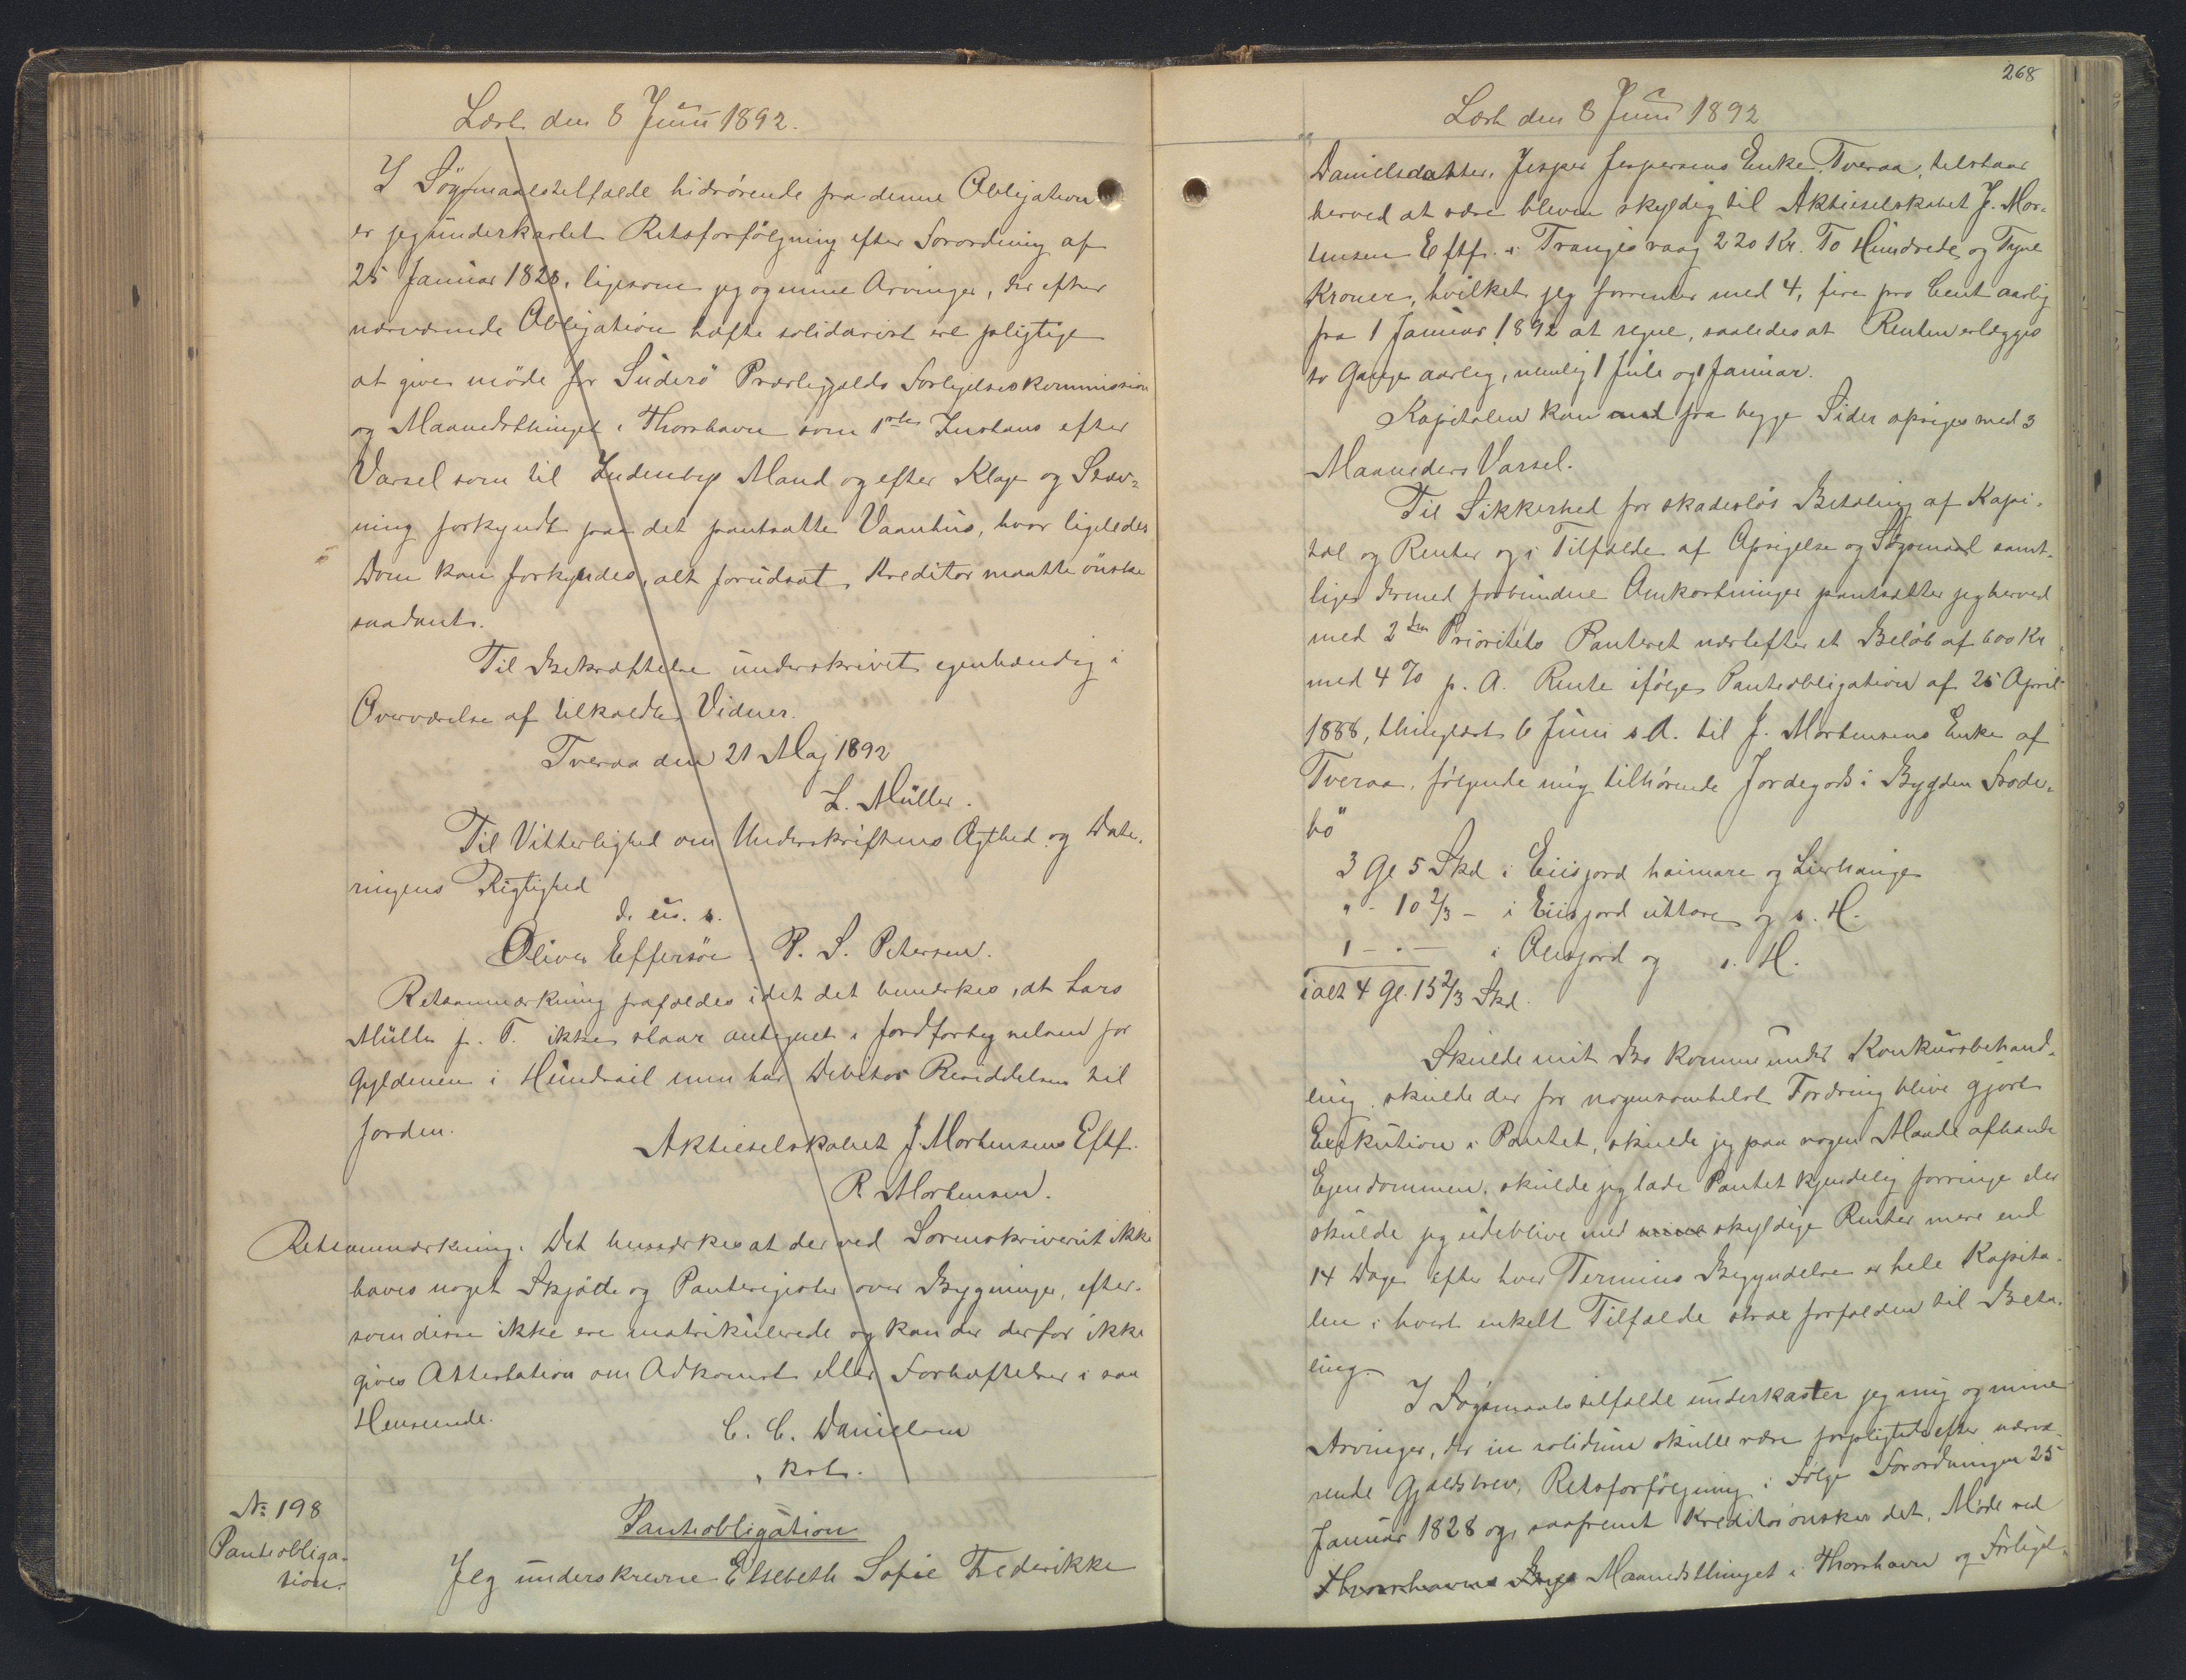 Læst den 8 Juni 1892.
I Søgsmaalstilfælde hidrørende fra denne Obligation
er jeg underkastet Retsforfølgning efter Forordning af
25 Januar 1828, ligesom jeg og mine Arvinger, der efter
nærværende Obligation hæfte solidarisk ere pligtige
at give møde for Suderø Præstegjælds Forligelseskommission
og Maanedsthinget i Thorshavn som 1ste Instans efter
Varsel som til Indenbys Mand og efter Klage og Stæv-
ning forkyndt paa det pantsatte Vaanhus, hvor ligeledes
Dom kan forkyndes, alt forudsat Kreditor maatte ønske
saadant.
Til Bekræftelse underskrivet egenhændig i
Overværelse af tilkaldte Vidner.
Tveraa den 21 Maj 1892
L. Müller.
Til Vitterlighed om Underskriftens Ægthed og Date-
ringens Rigtighed
d. u. s.
Oliver Effersøe. P. S. Petersen.
Retsanmærkning frafaldes idet det bemærkes, at Lars
Müller p. T. ikke staar antegnet i Jordfortegnelsen for
Gyldenen i Hundrail men har Debitor Besiddelsen til
Jorden.
Aktieselskabet J. Mortensens Eftf.
R. Mortensen.
Retsanmærkning. Det bemærkes at der ved Sorenskriveriet ikke
haves noget Skjøde og Panteregister over Bygninger, efter-
som disse ikke ere matrikulerede og kan der derfor ikke
gives Attestation om Adkomst eller Forhæftelser i saa
Henseende.
C. C. Danielsen
kst.
№ 198
Panteobliga-
tion.
Panteobligation
Jeg underskrevne Elsebeth Sofie Frederikke
268
Læst den 8 Juni 1892
Danielsdatter, Jesper Jespersens Enke, Tveraa, tilstaar
herved at være bleven skyldig til Aktieselskabet J. Mor-
tensen Eftf. i Trangisvaag 220 Kr. To Hundrede og Tyve
Kroner, hvilket jeg forrenter med 4, fire pro Cent aarlig
fra 1 Januar 1892 at regne, saaledes at Renten erlægges
to Gange aarlig, nemlig 1 Juli og 1 Januar.
Kapitalen kan fra begge Sider opsiges med 3
Maaneders Varsel.
Til Sikkerhed for skadesløs Betaling af Kapi-
tal og Renter og i Tilfælde af Opsigelse og Søgsmaal samt-
lige dermed forbundne Omkostninger pantsætter jeg herved
med 2den Prioritets Panteret næstefter et Beløb af 600 Kr
med 4 % p. A. Rente ifølge Panteobligation af 25 April
1888, thinglæst 6 Juni s. A. til J. Mortensens Enke af
Tveraa, følgende mig tilhørende Jordegods i Bygden Frode-
bö
3 Gl 5 Skd i Eiisjord haimare og Lierhauge
" - 10 2/3 - i Eiisjord uttare og s. H.
1 - . - i Olisjord og s. H.
ialt 4 Gl. 15 2/3 Skd.
Skulde mit Bo komme under Konkursbehand-
ling, skulde der for nogensomhelst Fordring blive gjort
Exekution i Pantet, skulde jeg paa nogen Maade afhænde
Ejendommen, skulde jeg lade Pantet kjendelig forringe eller
skulde jeg udeblive med skyldige Renter mere end
14 Dage efter hver Termins Begyndelse er hele Kapita-
len i hvert enkelt Tilfælde strax forfalden til Beta-
ling.
I Søgsmaalstilfælde underkaster jeg mig og mine
Arvinger, der in solidum skulle være forpligtede efter nærvæ-
rende Gjældsbrev, Retsforfølgning i Følge Forordningen 25
Januar 1828 og, saafremt Kreditor ønsker det, Møde ved
Thorshavns Byes Maanedsthinget i Thorshavn og Forligel-